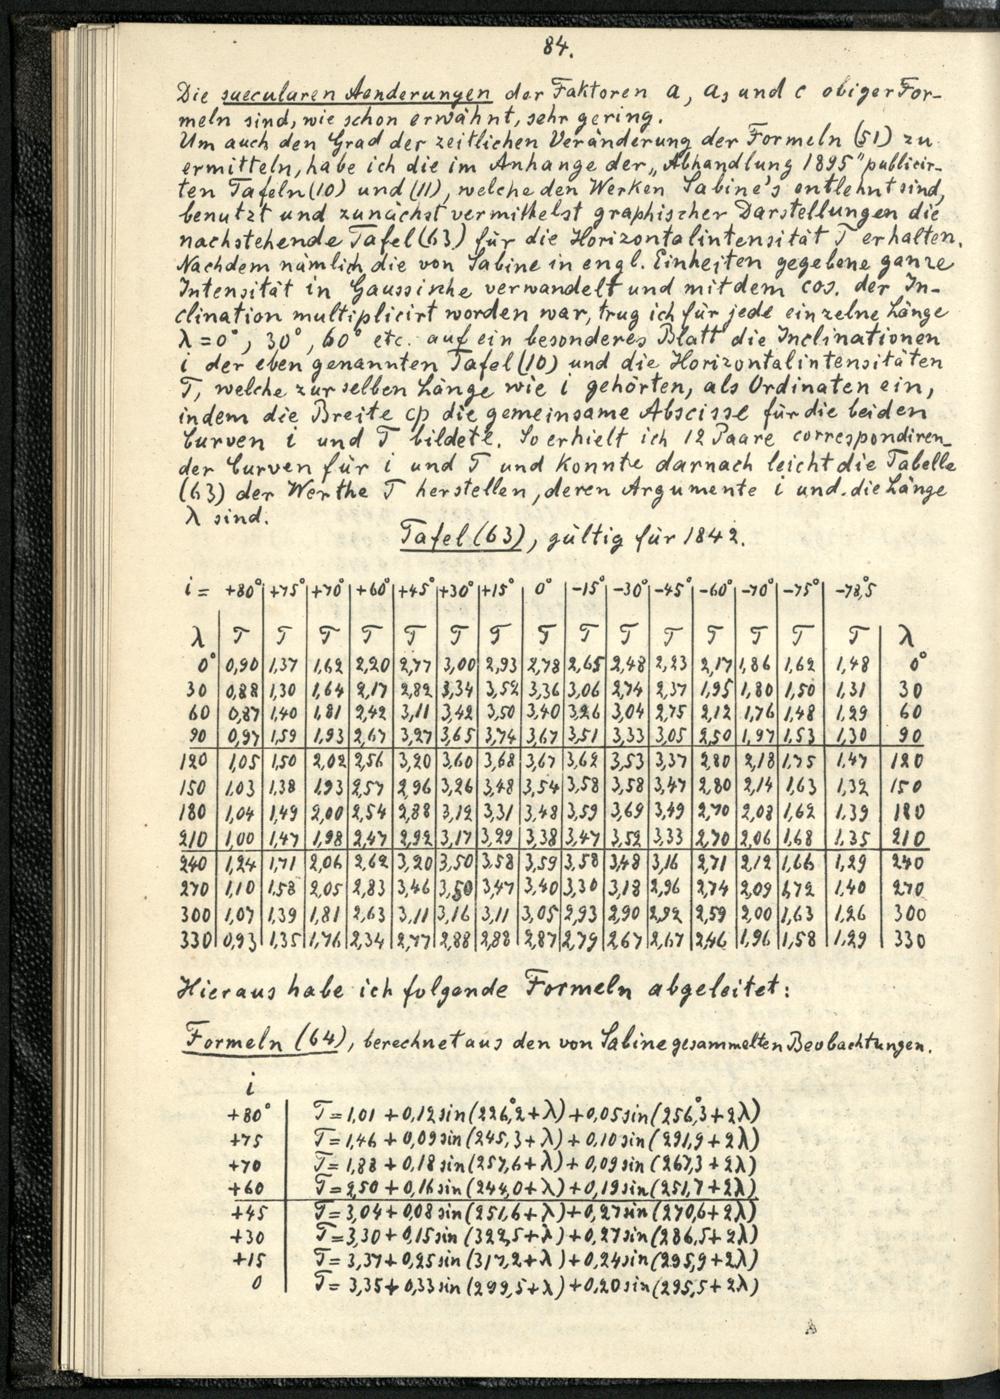 84.
Die saecularen Aenderungen der Faktoren a, a, und c obiger For-
meln sind, wie schon erwähnt, sehr gering.
Um auch den Grad der zeitlichen Veränderung der Formeln (51) zu
ermitteln, habe ich die im Anhange der „Abhandlung 1895" publicir-
ten Tafeln (10) und (11), welche den Werken Sabine's entlehnt sind,
benutzt und zunächst vermittelst graphischer Darstellungen die
nachstehende Tafel (63) für die Horizontalintensität T erhalten.
Nachdem nämlich die von Sabine in engl. Einheiten gegebene ganze
Intensität in Gaussische verwandelt und mit dem cos. der In-
clination multiplicirt worden war, trug ich für jede einzelne Länge
λ = 0°, 30°, 60° etc. auf ein besonderes Blatt die Inclinationen
i der eben genannten Tafel (10) und die Horizontalintensitäten
T, welche zur selben Länge wie i gehörten, als Ordinaten ein,
indem die Breite φ die gemeinsame Abscisse für die beiden
Curven i und T bildete. So erhielt ich 12 Paare correspondiren-
der Curven für i und T und konnte darnach leicht die Tabelle
(63) der Werthe T herstellen, deren Argumente i und die Länge
λ sind.
Tafel (63), gültig für 1842.
i = +80° +75° +70° +60° +45° +30° +15° 0° -15° -30° -45° -60° -70° -75° -78,°5
λ T T T T T T T T T T T T T T T λ
0° 0,90 1,37 1,62 2,20 2,77 3,00 2,93 2,78 2,65 2,48 2,23 2,17 1,86 1,62 1,48 0°
30 0,88 1,30 1,64 2,17 2,82 3,34 3,52 3,36 3,06 2,74 2,37 1,95 1,80 1,50 1,31 30
60 0,87 1,40 1,81 2,42 3,11 3,42 3,50 3,40 3,26 3,04 2,75 2,12 1,76 1,48 1,29 60
90 0,97 1,59 1,93 2,67 3,27 3,65 3,74 3,67 3,51 3,33 3,05 2,50 1,97 1,53 1,30 90
120 1,05 1,50 2,02 2,56 3,20 3,60 3,68 3,67 3,62 3,53 3,37 2,80 2,18 1,75 1,47 120
150 1,03 1,38 1,93 2,57 2,96 3,26 3,48 3,54 3,58 3,58 3,47 2,80 2,14 1,63 1,32 150
180 1,04 1,49 2,00 2,54 2,88 3,12 3,31 3,48 3,59 3,69 3,49 2,70 2,08 1,62 1,39 180
210 1,00 1,47 1,98 2,47 2,92 3,17 3,29 3,38 3,47 3,52 3,33 2,70 2,06 1,68 1,35 210
240 1,24 1,71 2,06 2,62 3,20 3,50 3,58 3,59 3,58 3,48 3,16 2,71 2,12 1,66 1,29 240
270 1,10 1,58 2,05 2,83 3,46 3,50 3,47 3,40 3,30 3,18 2,96 2,74 2,09 1,72 1,40 270
300 1,07 1,39 1,81 2,63 3,11 3,16 3,11 3,05 2,93 2,90 2,92 2,59 2,00 1,63 1,26 300
330 0,93 1,35 1,76 2,34 2,77 2,88 2,88 2,87 2,79 2,67 2,67 2,46 1,96 1,58 1,29 330
Hieraus habe ich folgende Formeln abgeleitet:
Formeln (64), berechnet aus den von Sabine gesammelten Beobachtungen.
i
+80° T = 1,01 + 0,12 sin (226,°2 + λ) + 0,05 sin (256,°3 + 2λ)
+75 T = 1,46 + 0,09 sin (245,3 + λ) + 0,10 sin (291,9 + 2λ)
+70 T = 1,88 + 0,18 sin (257,6 + λ) + 0,09 sin (267,3 + 2λ)
+60 T = 2,50 + 0,16 sin (244,0 + λ) + 0,19 sin (251,7 + 2λ)
+45 T = 3,04 + 0,08 sin (251,6 + λ) + 0,27 sin (270,6 + 2λ)
+30 T = 3,30 + 0,15 sin (322,5 + λ) + 0,27 sin (286,5 + 2λ)
+15 T = 3,37 + 0,25 sin (317,2 + λ) + 0,24 sin (295,9 + 2λ)
0 T = 3,35 + 0,33 sin (299,5 + λ) + 0,20 sin (295,5 + 2λ)